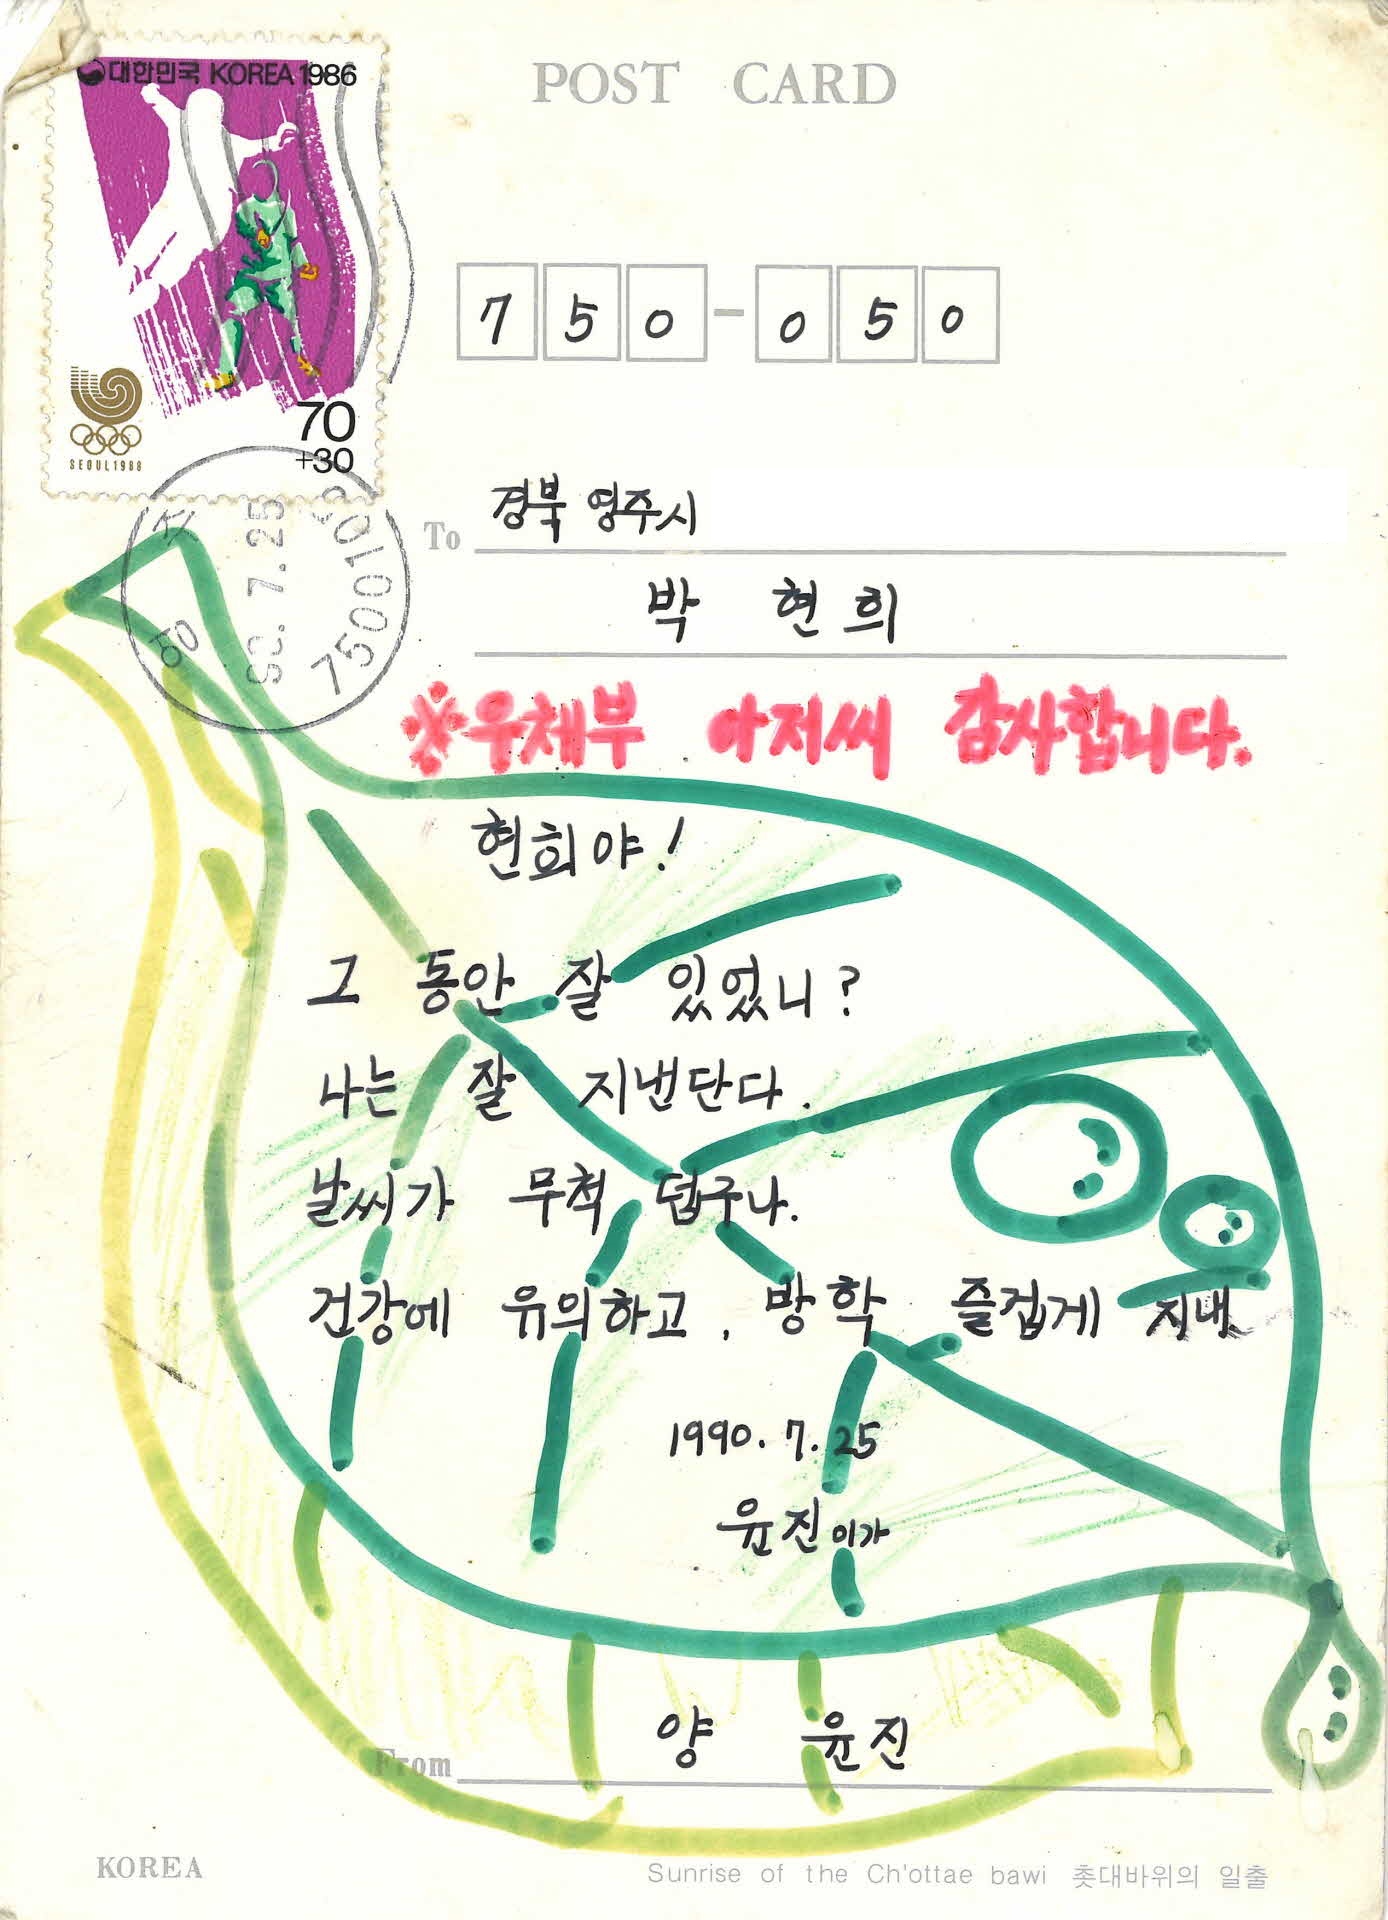 대한민국 KOREA 1986
POST CARD
70
+30
SEOUL1988
750-050
To 경북 영주시
박 현희
영 주
90.7.25
750010
※우체부 아저씨 감사합니다.
현희야!
그 동안 잘 있었니?
나는 잘 지낸단다.
날씨가 무척 덥구나.
건강에 유의하고, 방학 즐겁게 지내
1990. 7. 25
윤진이가
From 양 윤진
KOREA
Sunrise of the Ch'ottae bawi 촛대바위의 일출